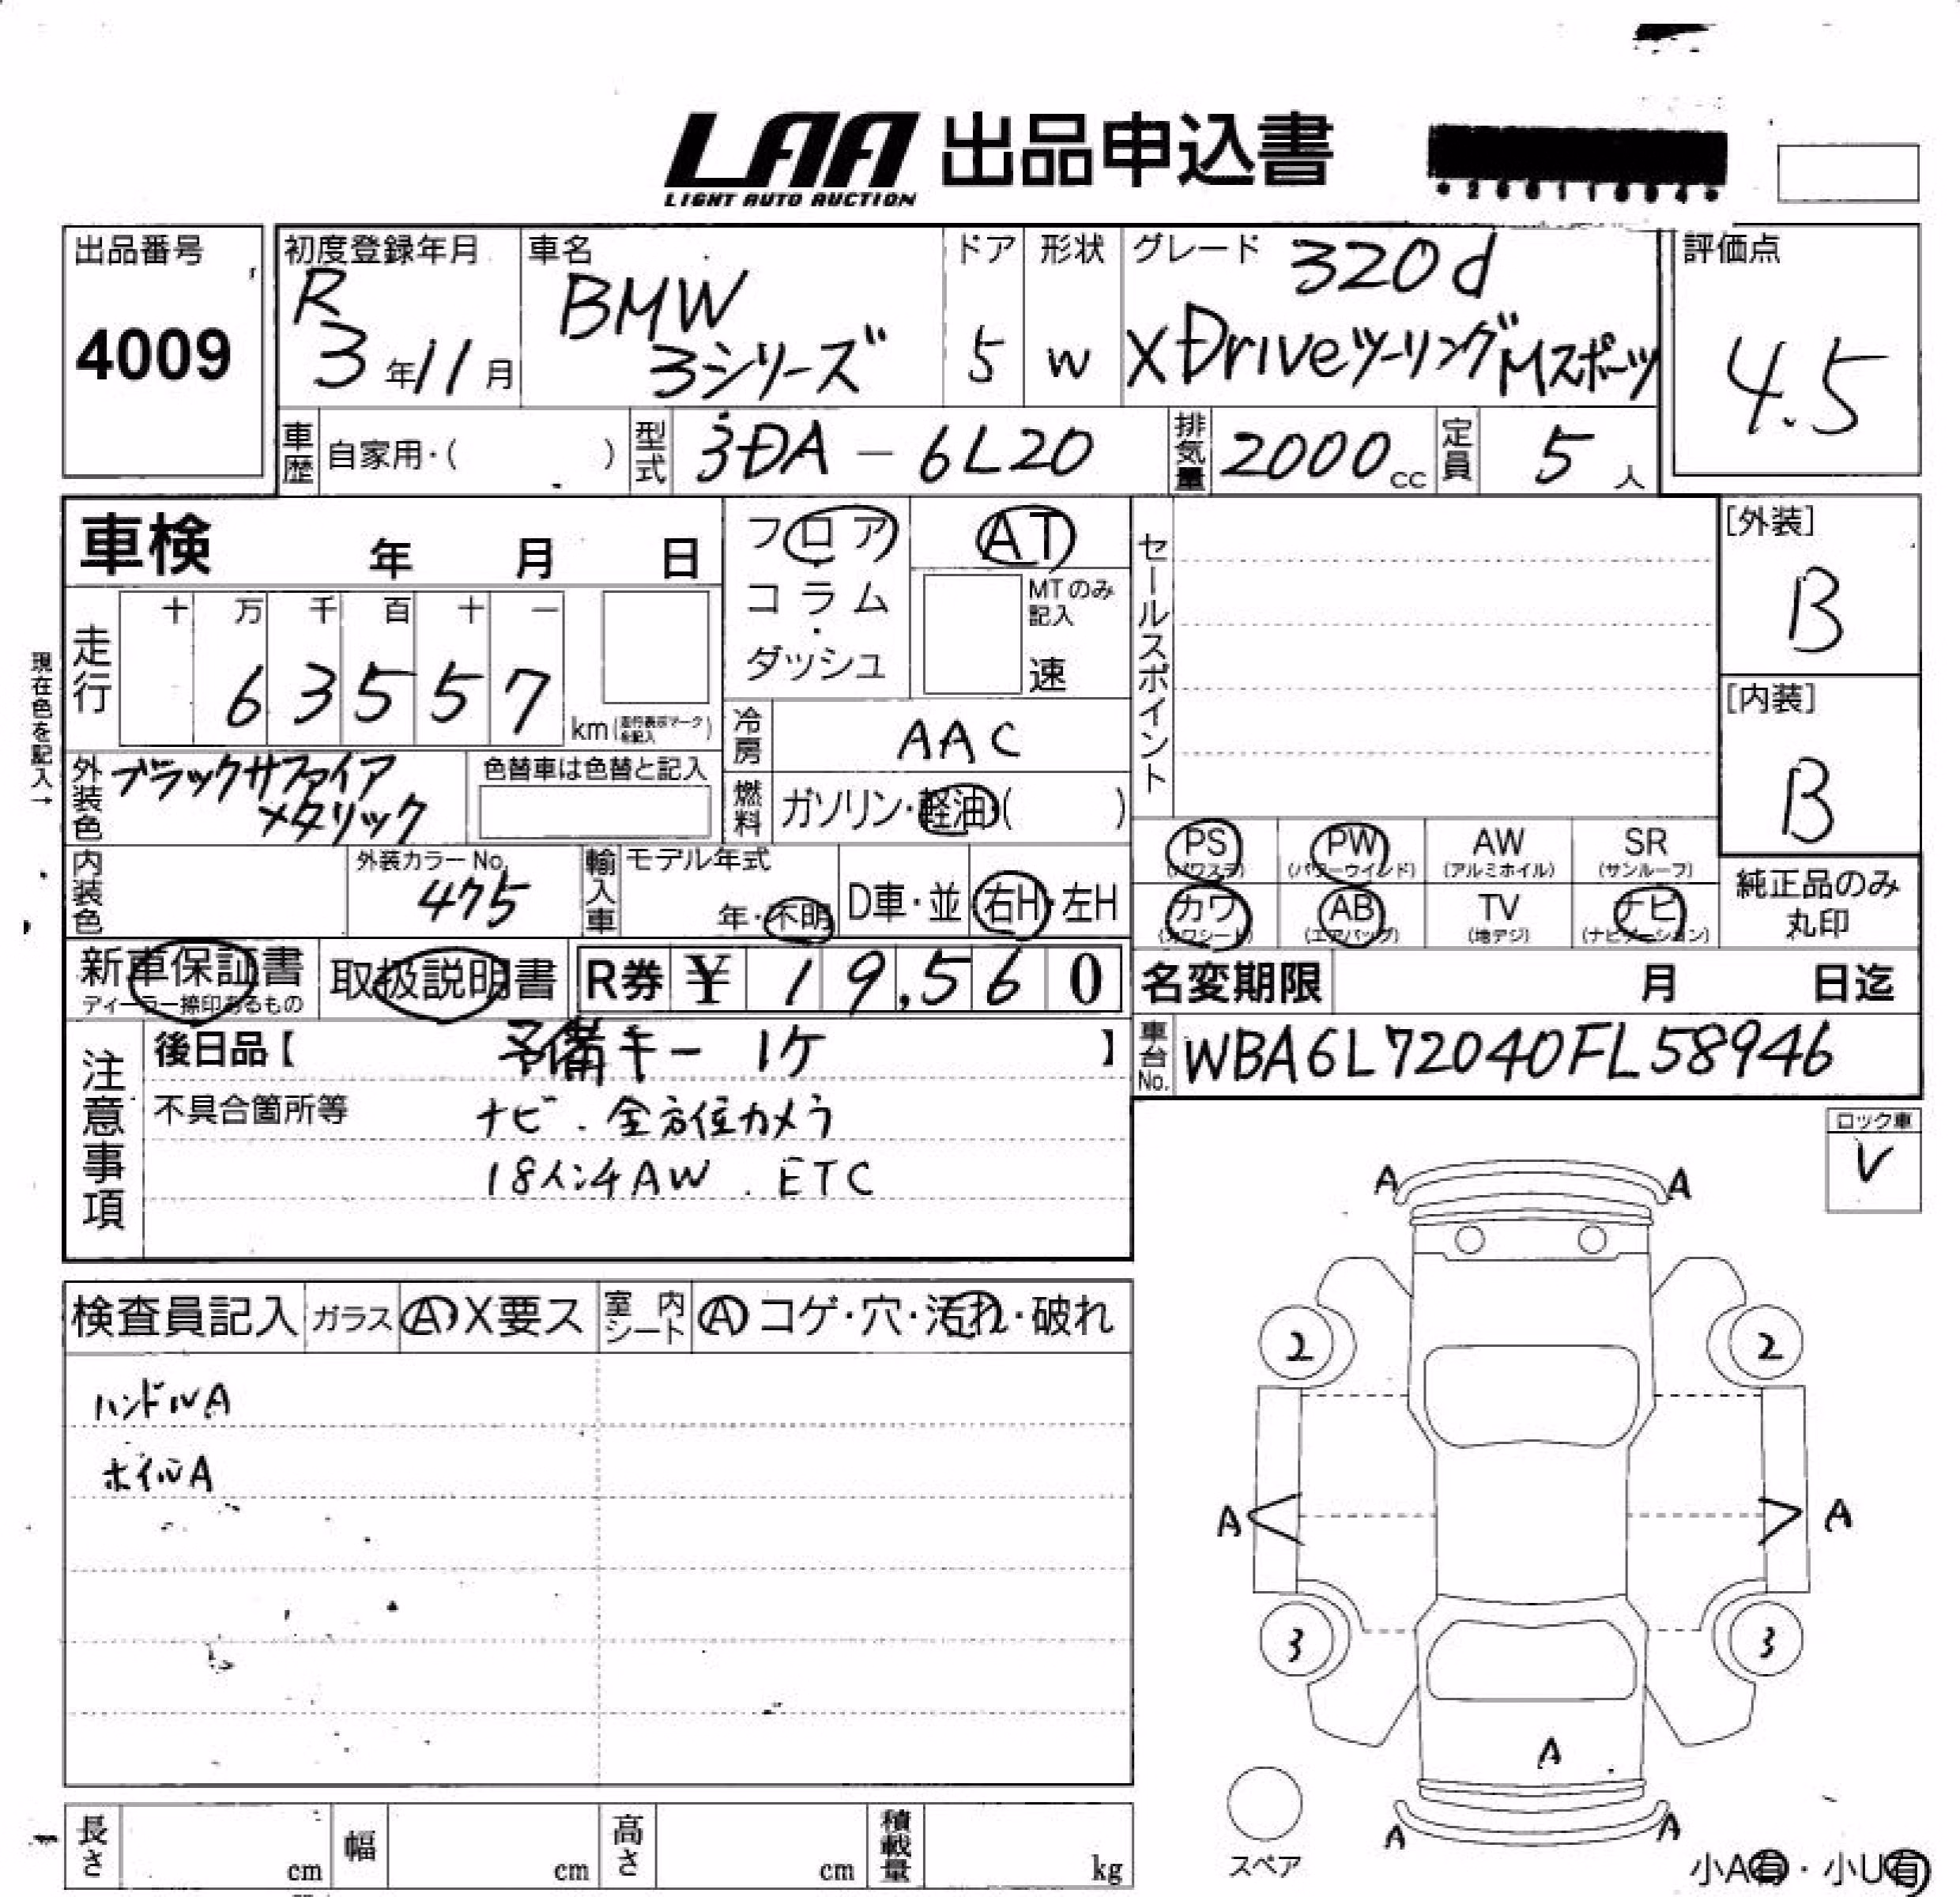 LAA 出品申込書
LIGHT AUTO AUCTION
出品番号
4009
初度登録年月
R
3年11月
車名
BMW
3シリーズ
ドア
5
形状
W
グレード 320d
XDriveツーリングMスポーツ
評価点
4.5
車歴 自家用・( )
型式 3DA - 6L20
排気量 2000cc
定員 5人
車検 年 月 日
現在色を記入→
走行
十 万 千 百 十 一
6 3 5 5 7
km
フロア・コラム・ダッシュ
AT
MTのみ記入
速
冷房 AAC
燃料 ガソリン・軽油・( )
外装色 ブラックサファイア
メタリック
色替車は色替と記入
内装色
外装カラーNo.
475
輸入車
モデル年式
年・不明
D車・並
右H・左H
セールスポイント
[外装]
B
[内装]
B
PS (パワステ)
PW (パワーウインド)
AW (アルミホイル)
SR (サンルーフ)
カワ (カワシート)
AB (エアバッグ)
TV (地デジ)
ナビ (ナビゲーション)
純正品のみ
丸印
新車保証書
ディーラー捺印あるもの
取扱説明書
R券 ¥ 19,560
名変期限 月 日迄
車台No. WBA6L72040FL58946
注意事項
後日品【 予備キー 1ケ 】
不具合箇所等 ナビ. 全方位カメラ
18インチAW. ETC
ロック車
V
検査員記入 ガラス A X要ス
室内シート A コゲ・穴・汚れ・破れ
ハンドルA
ホイルA
A A
2 2
A A
3 3
A
A A
スペア
小A有・小U有
長さ cm
幅 cm
高さ cm
積載量 kg